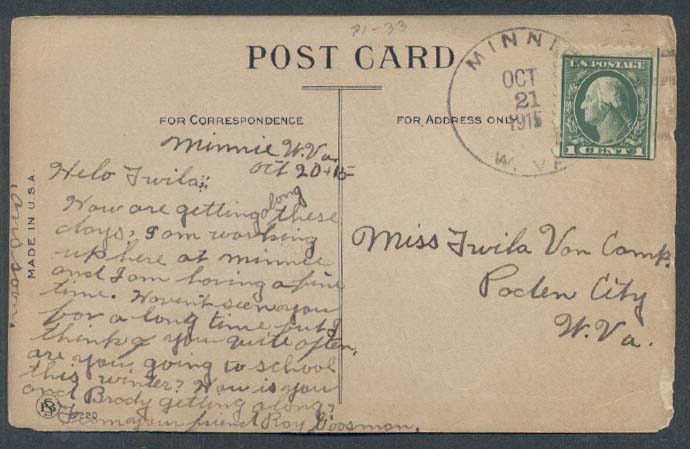 P1-33
2
POST CARD
MINNIE
OCT
21
1915
W. VA
U.S. POSTAGE
1 CENT 1
FOR CORRESPONDENCE
FOR ADDRESS ONLY
MADE IN U.S.A
Minnie W.Va.
Oct 20-15
Helo Twila:
How are getting along these
days, I am working
up here at Minnie
and I am having a fine
time. Haven't seen you
for a long time but I
think of you quite often,
are you going to school
this winter? How is you
and Brody getting along?
From your friend Roy
Ans soon.
Miss Twila Van Camp.
Paden City
W. Va.